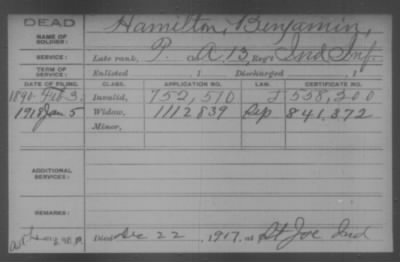 DEAD
NAME OF SOLDIER:
Hamilton, Benjamin,
SERVICE:
Late rank, P. Co. A, 13, Reg't Ind Inf.
TERM OF SERVICE:
Enlisted , 1 Discharged , 1
DATE OF FILING. CLASS. APPLICATION NO. LAW. CERTIFICATE NO.
1890 3. Invalid, 752,510 538,200
1918 Jan 5 Widow, 1112839 841,372
Minor,
ADDITIONAL SERVICES:
REMARKS:
Died Dec 22, 1917, at St Joe Ind